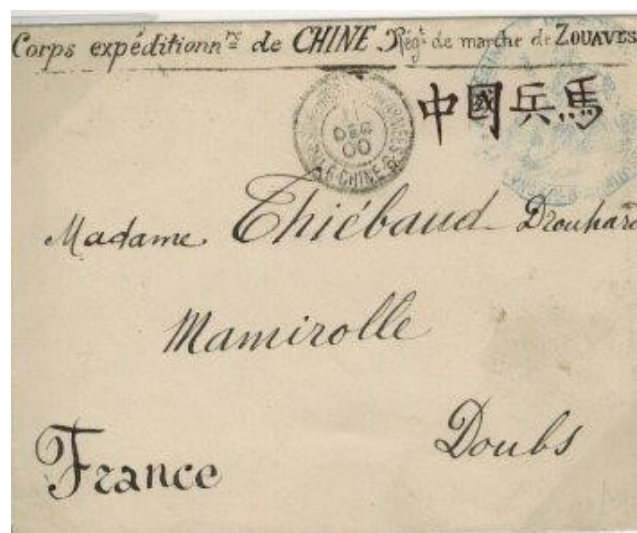 Corps expéditionn.re de CHINE. Régt de marche de ZOUAVES
中國兵馬
11
DEC
00
CHINE
Madame Thiébaud-Drouhard
Mamirolle
Doubs
France